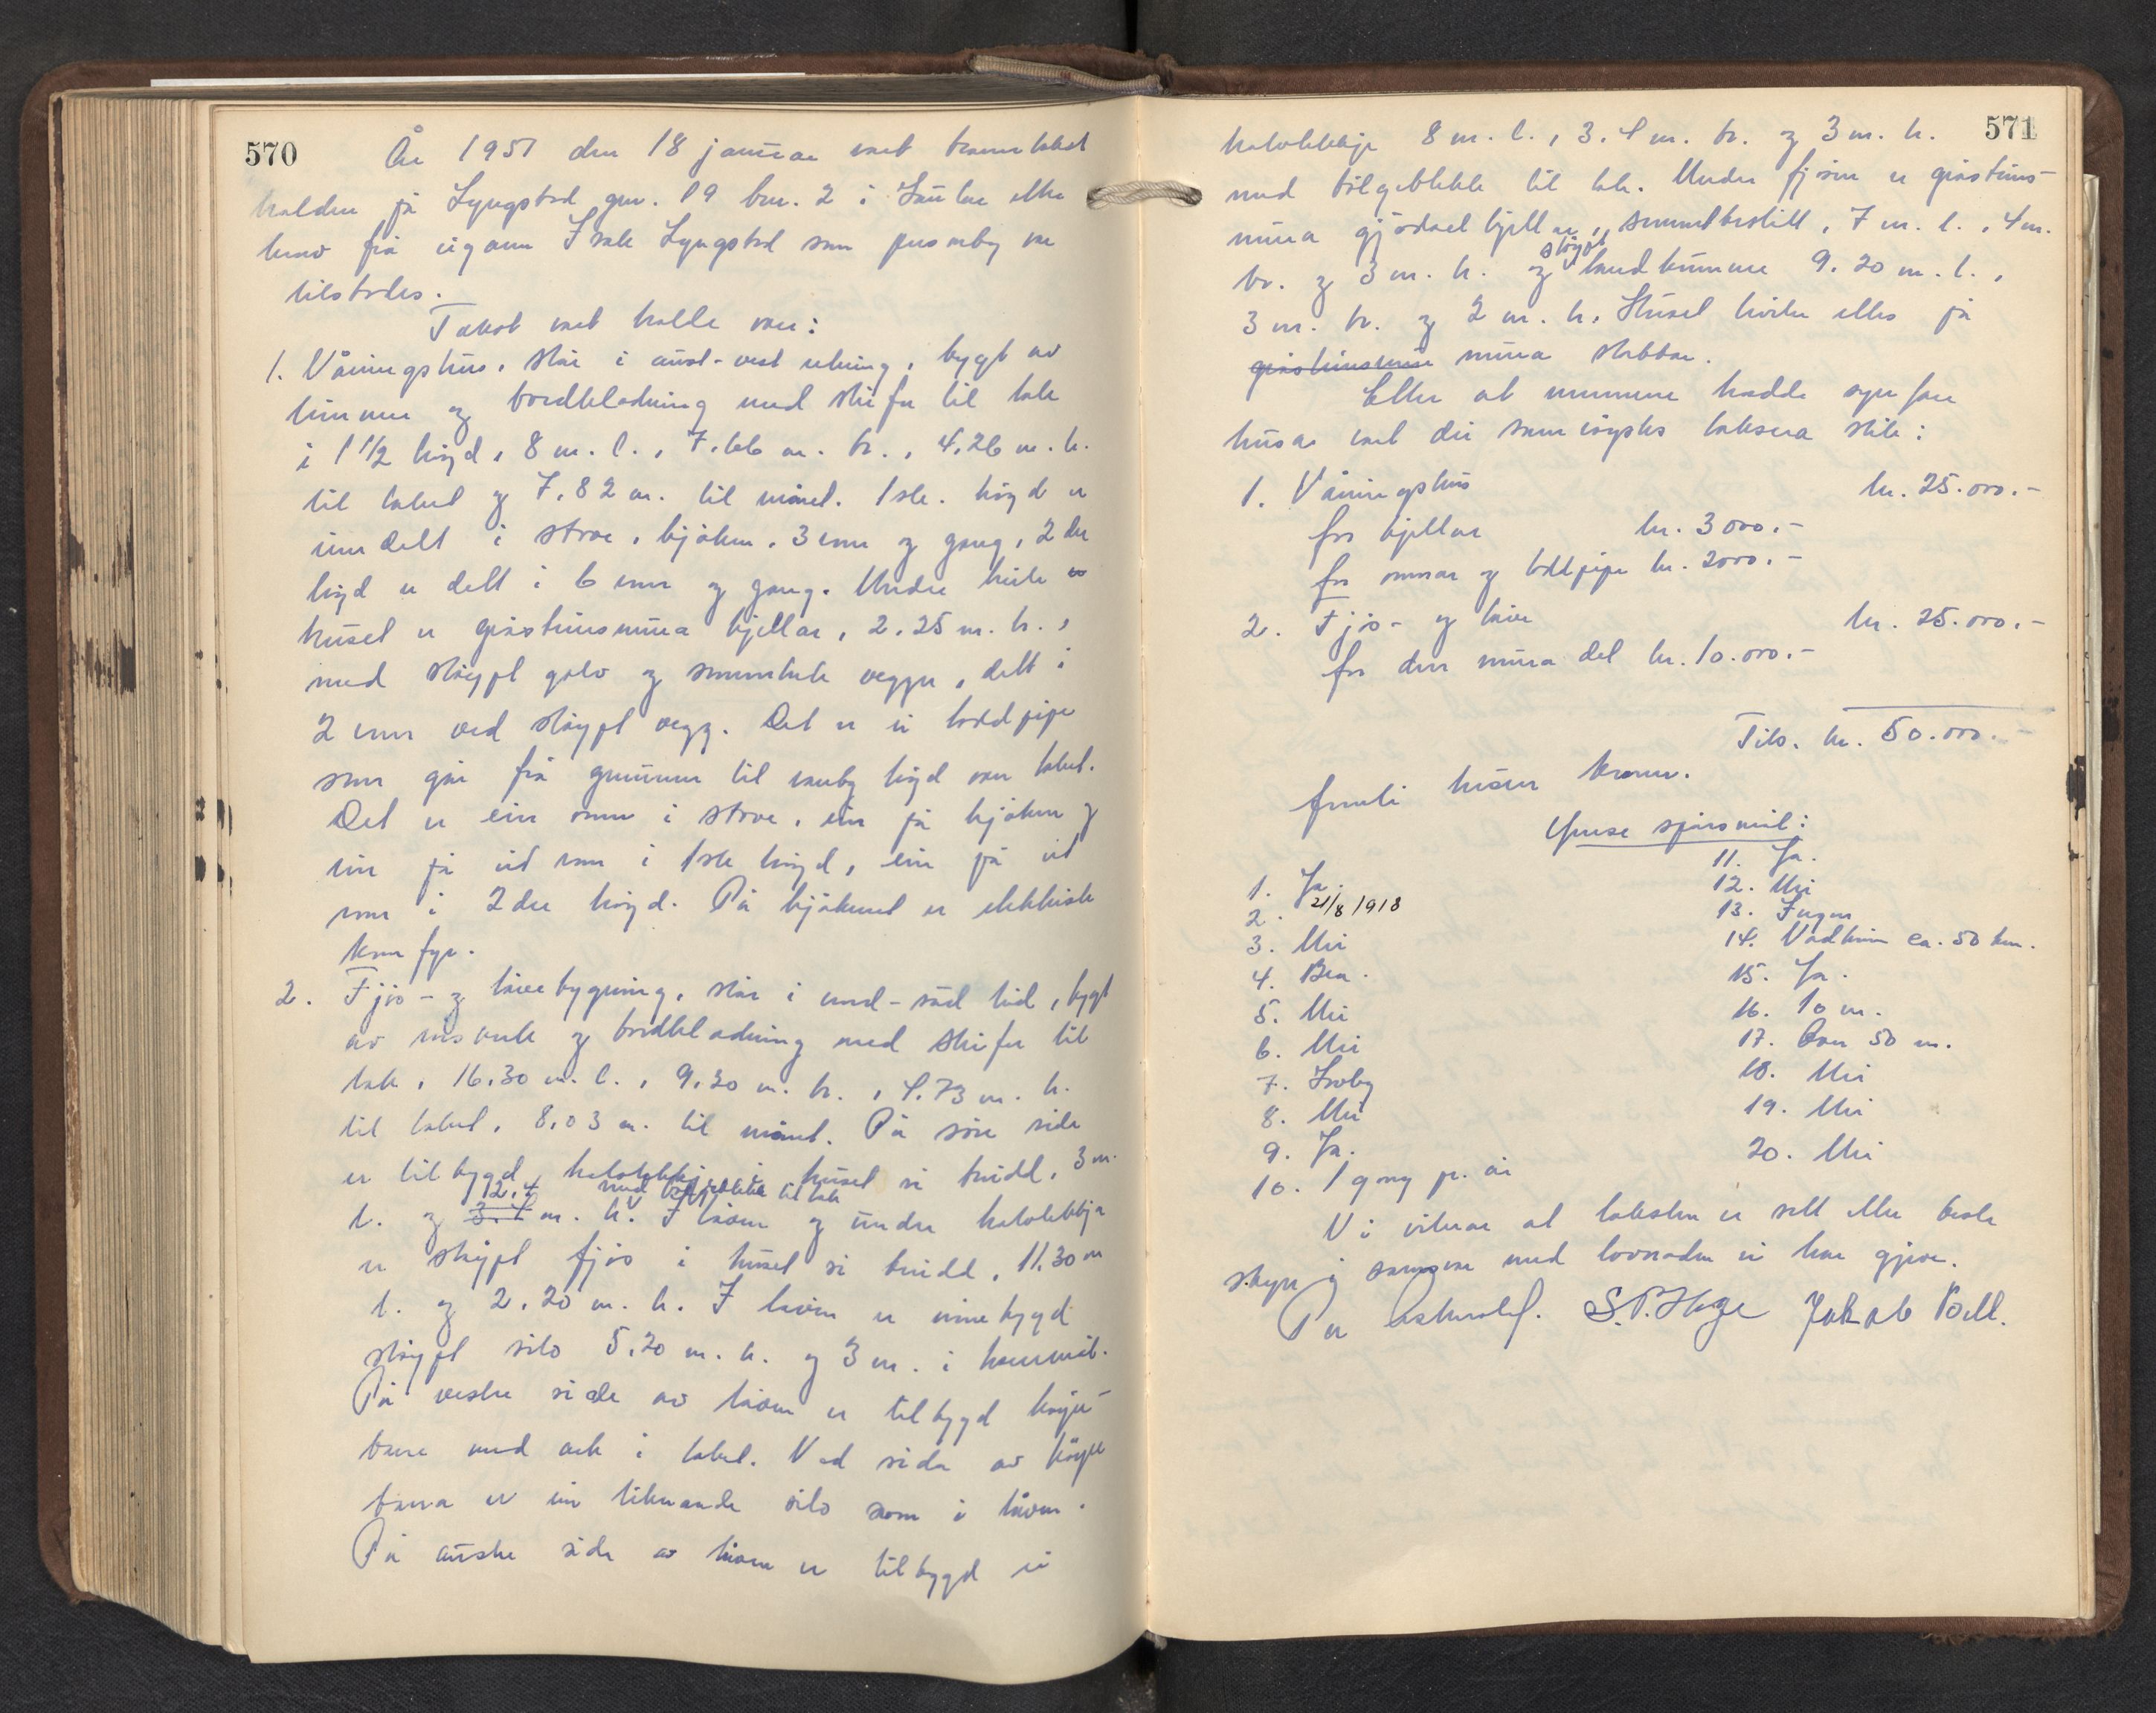 570
År 1951 den 18 januar vart branntakst
halden på Lyngstad gnr. 19 bnr. 2 i Gaular etter
krav frå eigaren Isak Lyngstad som personleg var
tilstades.
Takst vart halde over:
1. Våningshus, står i aust-vest retning, bygt av
timmer og bordkledning med skifer til tak
i 1 1/2 høgd, 8 m. l., 7,66 m. br., 4,26 m. h.
til taket og 7,82 m. til mønet. 1ste. høgd er
inndelt i stove, kjøken, 3 rom og gang, 2dre
høgd er delt i 6 rom og gang. Under heile
huset er gråsteinsmura kjellar, 2,25 m. h.,
med støypt golv og sementerte vegger, delt i
2 rom ved støypt vegg. Det er ei loddpipe
som går frå grunnen til lovleg høgd over taket.
Det er ein omn i stove, ein på kjøken og
ein på eit rom i 1ste høgd, ein på eit
rom i 2dre høgd. På kjøkenet er elektrisk
komfyr.
2. Fjøs- og løebygning, står i nord-sud leid, bygt
av reisverk og bordkledning med skifer til
tak, 16,30 m. l., 9,30 m. br., 4,73 m. h.
til taket, 8,03 m. til mønet. På søre side
er tilbygd halvtekkje i huset si breidd, 3 m.
12,4 med bølgjeblikk til tak
l. og 3.4 m. h. I løa og under halvtekkja
er støypt fjøs i huset si breidd, 11,30 m
l. og 2,20 m. h. I løa er innebygd
støypt silo 5,20 m. h. og 3 m. i tverrmål.
På vestre side av løa er tilbygd køyre-
bru med ark i taket. Ved sida av køyre
brua er ein liknande silo som i løa.
På austre side av løa er tilbygd ei
571
halvtekkje 8 m. l., 3,4 m. br. og 3 m. h.
med bølgjeblikk til tak. Under fjøset er gråsteins-
mura gjødselkjellar, sementbestitt, 7 m. l., 4 m.
støypt
br. og 3 m. h. og landkumme 9,20 m. l.,
3 m. br. og 2 m. h. Huset kviler elles på
gråsteinsmur mura stabbar.
Etter at mennene hadde synfare
husa vart dei samrøystes taksera slik:
1. Våningshus kr. 25.000.-
for kjellar kr. 3000.-
for omnar og loddpipe kr. 2000.-
2. Fjøs- og løe kr. 25.000.-
for den mura del kr. 10.000.-
Tils. kr. 50.000.-
femti tusen kroner.
Ymse spørsmål:
1. Ja.
2. 21/8 1918
3. Nei
4. Bra.
5. Nei
6. Nei
7. Lovleg
8. Nei
9. Ja.
10. 1 gong pr. år
11. Ja.
12. Nei
13. Ingen
14. Vadheim ca. 50 km.
15. Ja.
16. 10 m.
17. Over 50 m.
18. Nei
19. Nei
20. Nei
Vi vitnar at taksten er sett etter beste
skyn i samsvar med lovnaden vi har gjeve.
Per S. P. Hage Jakob Voll.